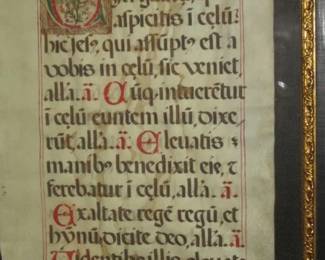 aspicitis i celū?
hic Jesꝰ, qui assūptꝰ est a
vobis in celū, sic veniet,
alla. ā. Cūq, intuerētur
i celū euntem illū, dixe
rūt, alla. ā. Eleuatis
manibꝰ benedixit eis, ⁊
ferebatur i celū, alla. ā.
Exaltate regē regū, et
hȳnū, dicite deo, alla. ā.
Videntibꝰ illis eleuatꝰ